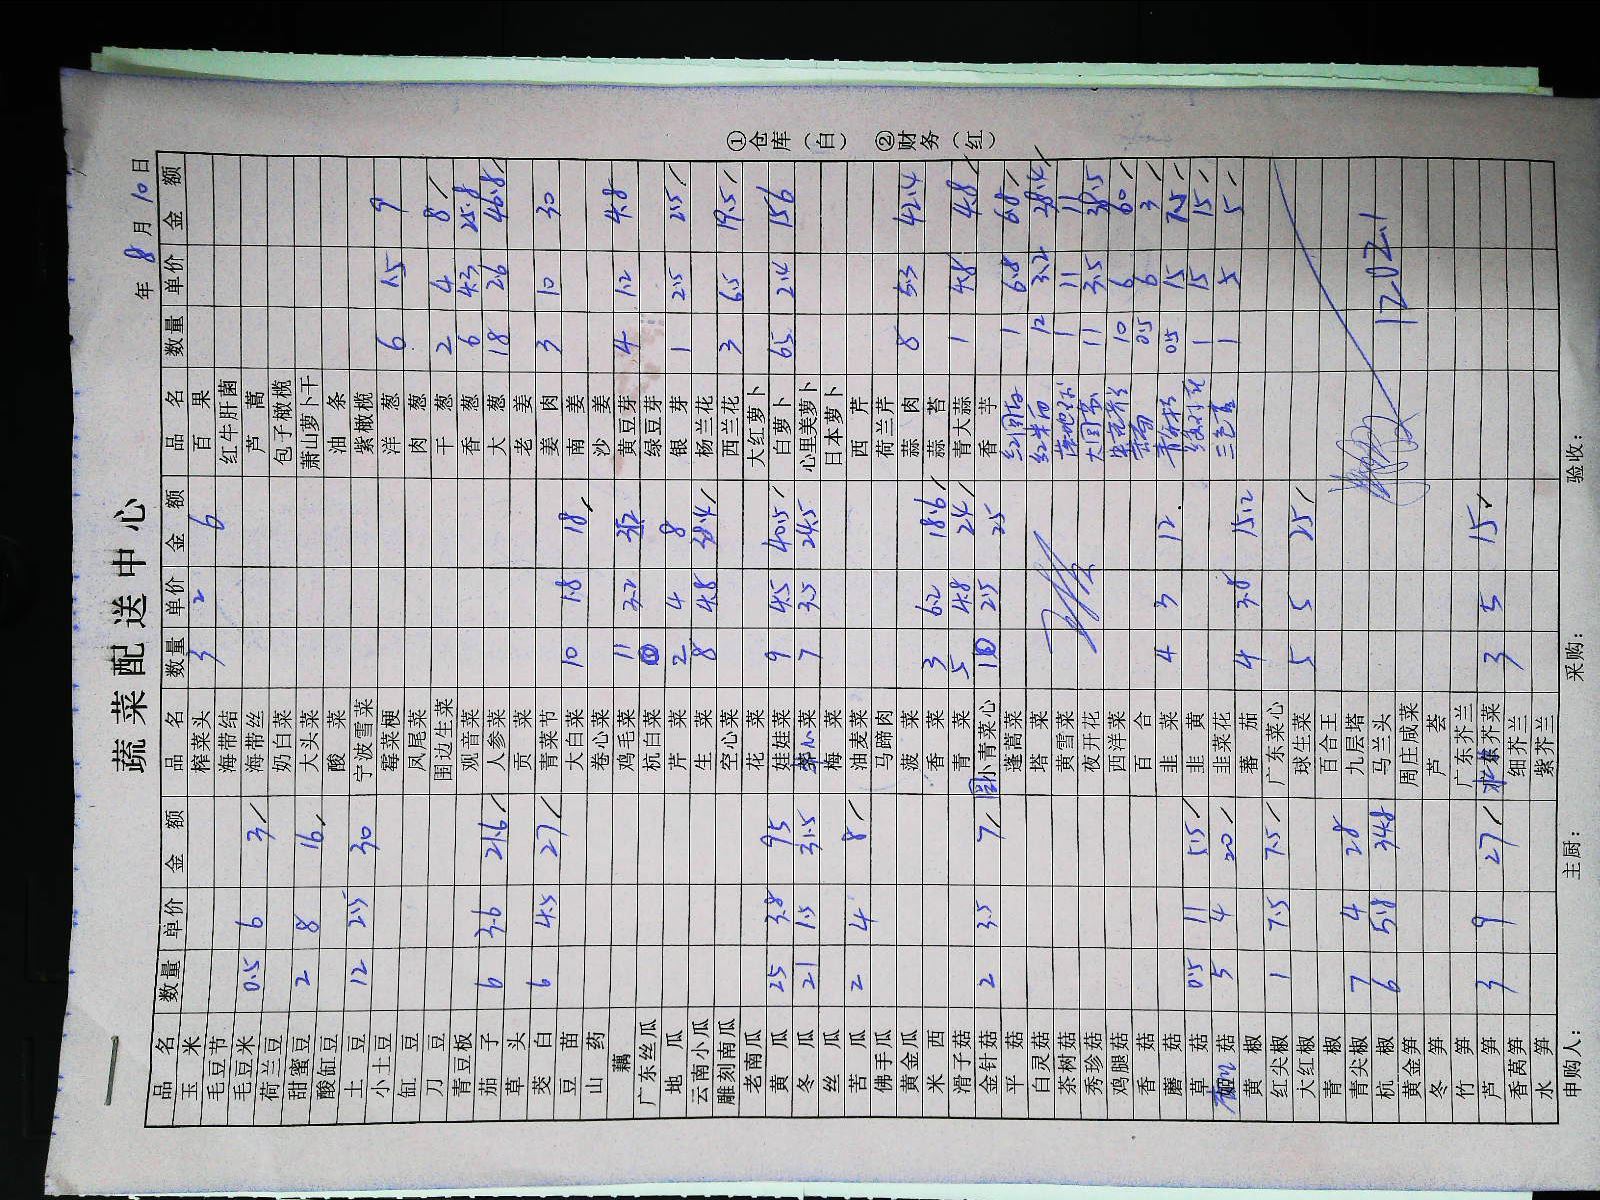 蔬菜配送中心
年 8 月 10 日
品名 数量 单价 金额 品名 数量 单价 金额 品名 数量 单价 金额
玉米 榨菜头 3 2 6 百果
毛豆节 海带结 红牛肝菌
毛豆米 0.5 6 3 海带丝 芦蒿
荷兰豆 奶白菜 包子橄榄
甜蜜豆 2 8 16 大头菜 萧山萝卜干
酸缸豆 酸菜 油条
土豆 12 2.5 30 宁波雪菜 紫橄榄
小土豆 霉菜梗 洋葱 6 1.5 9
缸豆 凤尾菜 肉葱
刀豆 围边生菜 干葱 2 4 8
青豆板 观音菜 香葱 6 4.3 25.8
茄子 6 3.6 21.6 人参菜 大葱 18 2.6 46.8
草头 贡菜 老姜
茭白 6 4.5 27 青菜节 姜肉 3 10 30
豆苗 大白菜 10 1.8 18 南姜
山药 卷心菜 沙姜
藕 鸡毛菜 11 3.2 35.2 黄豆芽 4 1.2 4.8
广东丝瓜 杭白菜 绿豆芽
地瓜 芹菜 2 4 8 银芽 1 2.5 2.5
云南小瓜 生菜 8 4.8 38.4 杨兰花
雕刻南瓜 空心菜 西兰花 3 6.5 19.5
老南瓜 花菜 大红萝卜
黄瓜 25 3.8 95 娃娃菜 9 4.5 40.5 白萝卜 65 2.4 156
冬瓜 21 1.5 31.5 心菜 7 3.5 24.5 心里美萝卜
丝瓜 梅菜 日本萝卜
苦瓜 2 4 8 油麦菜 西芹
佛手瓜 马蹄肉 荷兰芹
黄金瓜 菠菜 蒜肉 8 5.3 42.4
米西 香菜 3 6.2 18.6 蒜苔
滑子菇 青菜 5 4.8 24 青大蒜 1 4.8 4.8
金针菇 2 3.5 7 小青菜心 10 2.5 25 香芋
平菇 蓬蒿菜 1 6.8 6.8
白灵菇 塔菜 红米苋 12 3.2 38.4
茶树菇 黄雪菜 1 11 11
秀珍菇 夜开花 11 3.5 38.5
鸡腿菇 西洋菜 10 6 60
香菇 百合 0.5 6 3
蘑菇 韭菜 4 3 12 0.5 15 7.5
草菇 0.5 11 5.5 韭黄 1 15 15
菇 5 4 20 韭菜花 1 5 5
黄椒 蕃茄 4 3.8 15.2
红尖椒 1 7.5 7.5 广东菜心
大红椒 球生菜 5 5 25
青椒 百合王
青尖椒 7 4 28 九层塔
杭椒 6 5.8 34.8 马兰头 1202.1
黄金笋 周庄咸菜
冬笋 芦荟
竹笋 广东芥兰
芦笋 3 9 27 芥菜 3 5 15
香莴笋 细芥兰
水笋 紫芥兰
申购人： 主厨： 采购： 验收：
①仓库（白） ②财务（红）